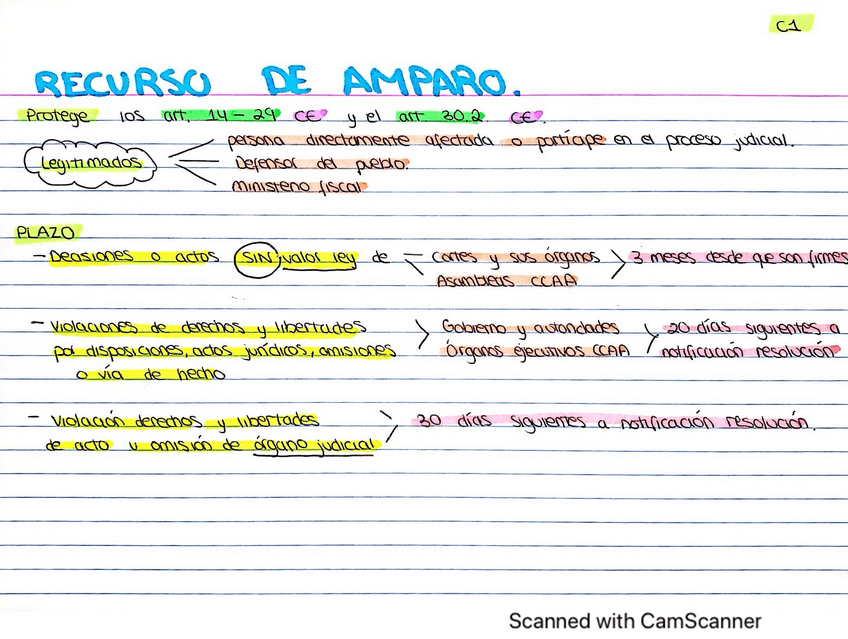 C1
RECURSO DE AMPARO.
Protege los art. 14 - 29 CE y el art 30.2 CE.
persona directamente afectada o partícipe en el proceso judicial.
Legitimados
Defensor del pueblo.
Ministerio fiscal
PLAZO
- Decisiones o actos SIN valor ley de - Cortes y sus órganos > 3 meses desde que son firmes
Asambleas CCAA
- Violaciones de derechos y libertades > Gobierno y autoridades > 20 días siguientes a
por disposiciones, actos jurídicos, omisiones Órganos ejecutivos CCAA notificación resolución
o vía de hecho
- Violación derechos y libertades > 30 días siguientes a notificación resolución.
de acto u omisión de órgano judicial
Scanned with CamScanner